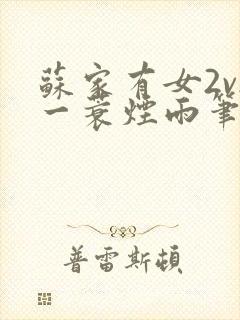 蘇家有女2v
一蓑煙雨筆
普雷斯頓